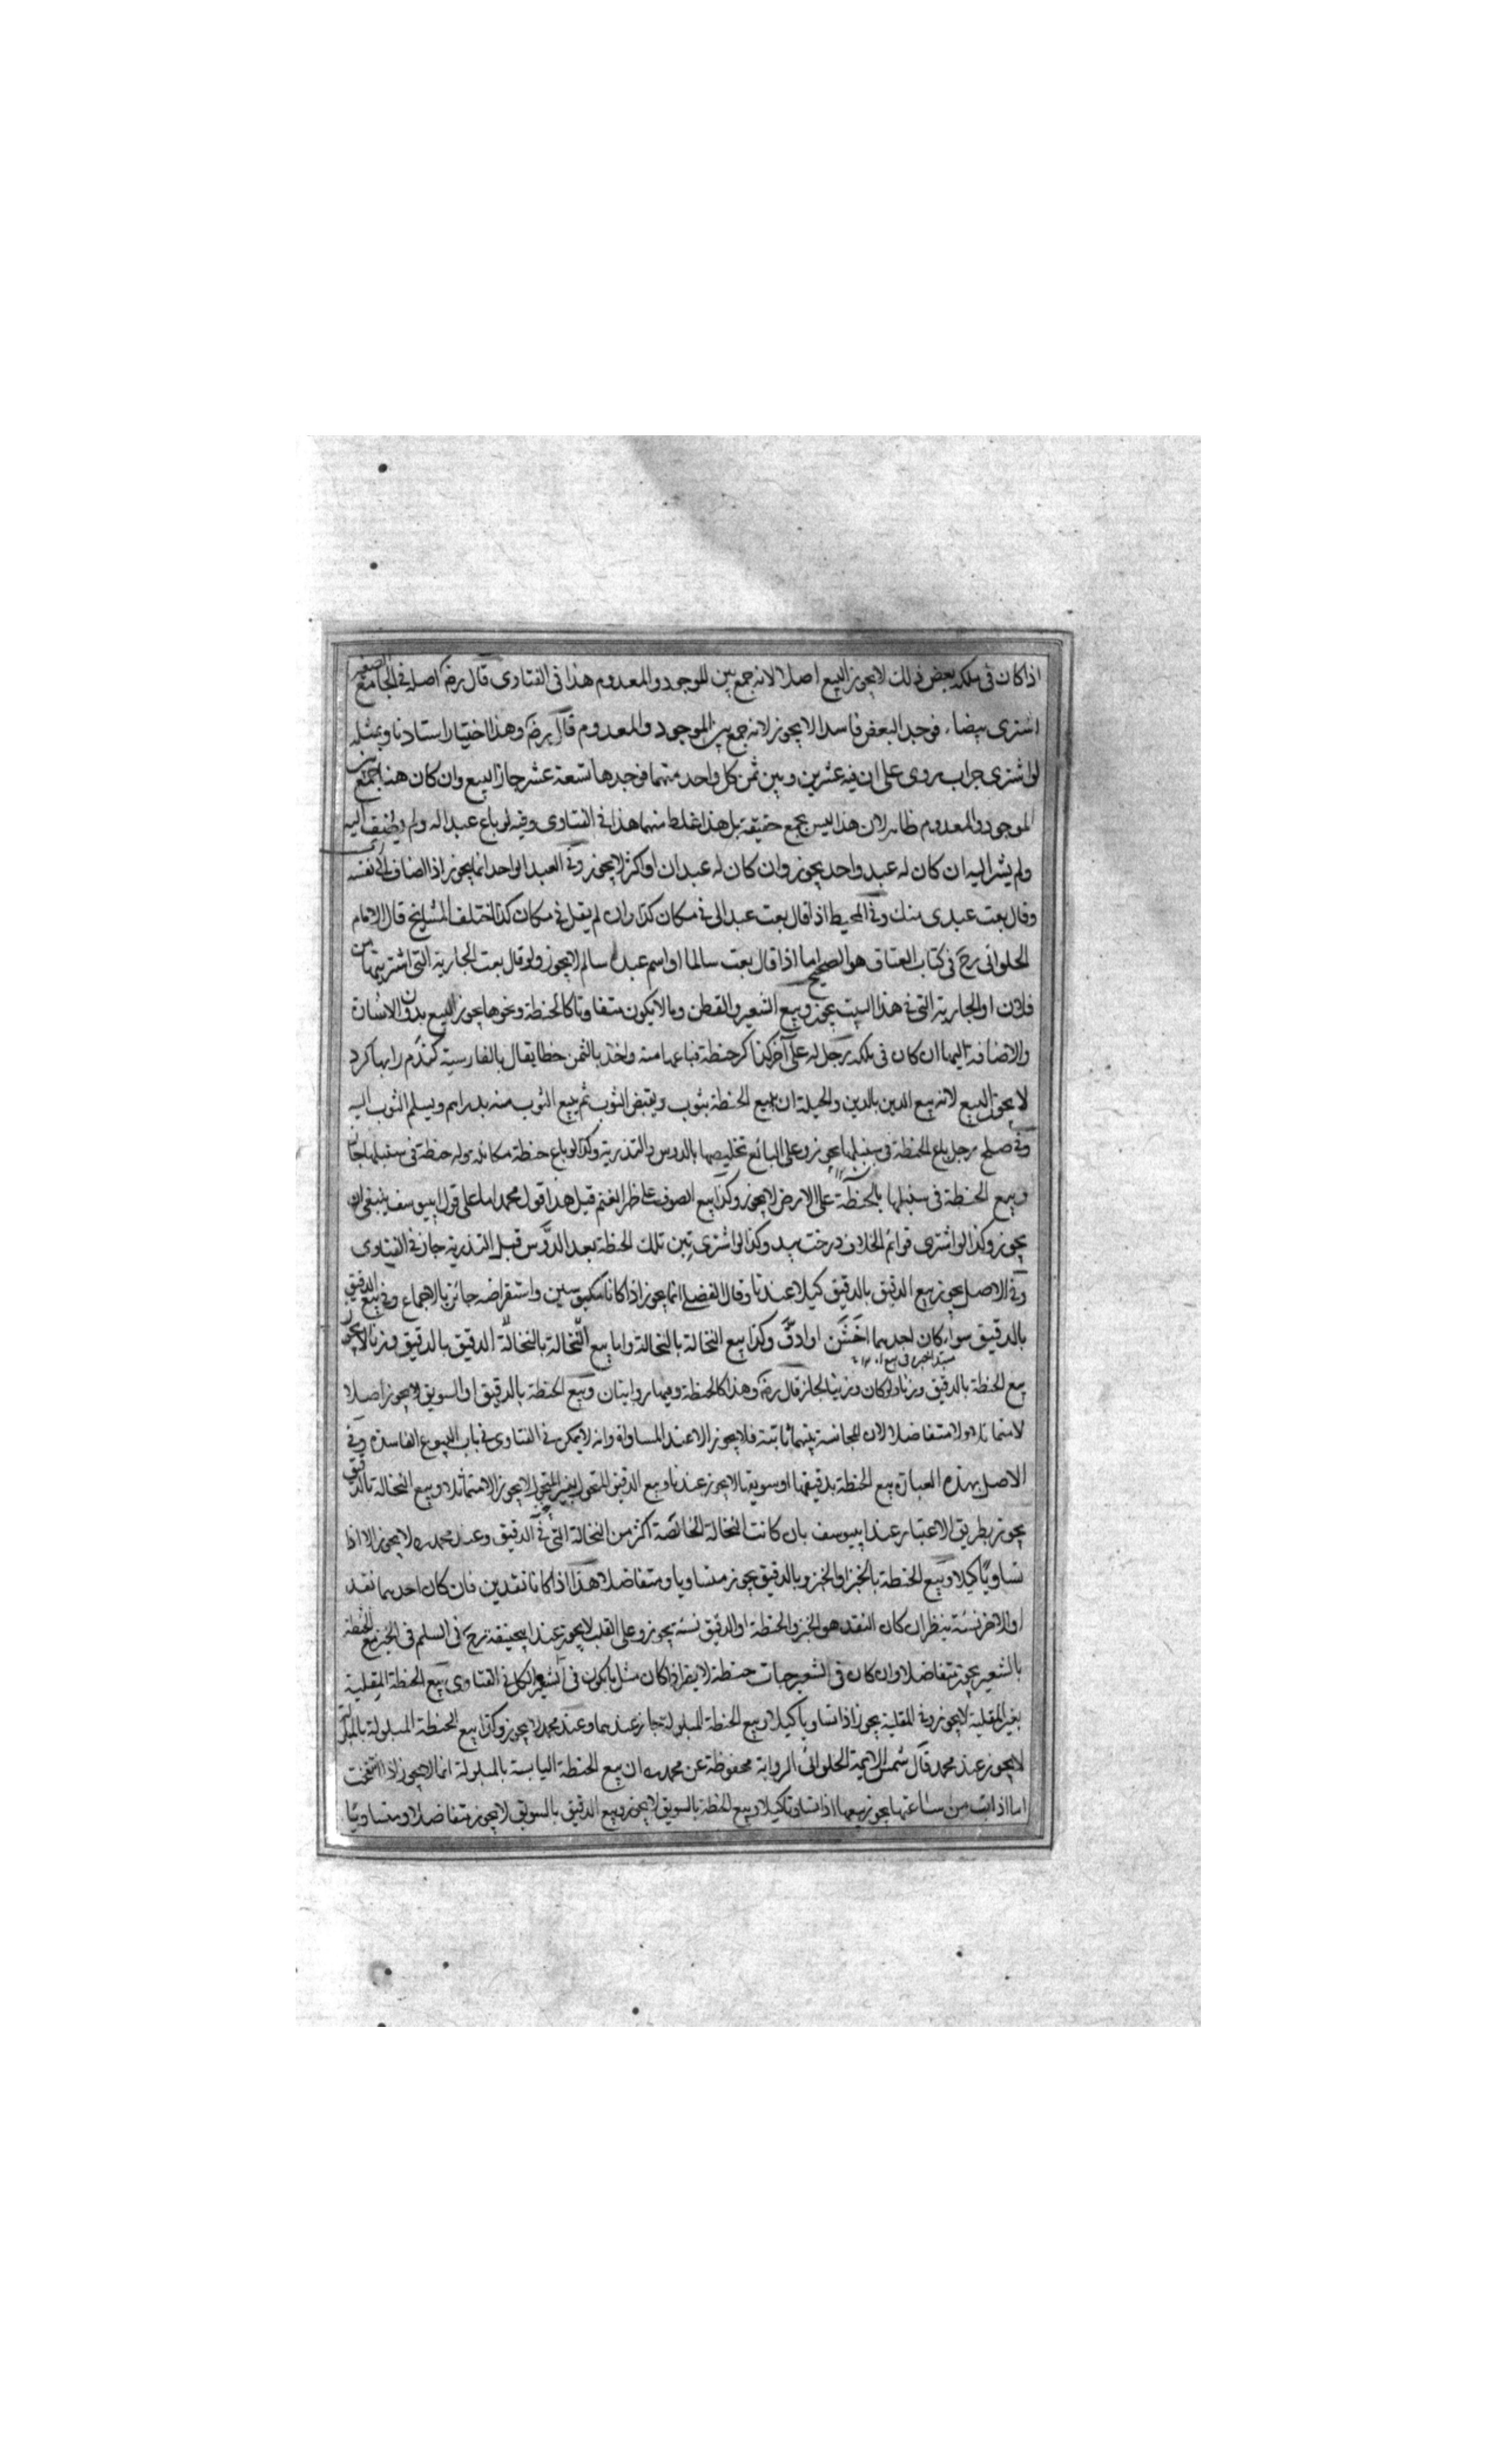 اذا كان فى ملكه بعض ذلك لا يجوز البيع اصلا لانه جمع بين الموجود والمعدوم هذا فى الفتاوى قال رضه اصله فى الجامع الصغير
اشترى بيضاء فوجد البعض فاسدا لا يجوز لانه جمع بين الموجود والمعدوم قال رضه وهذا اختيار استادنا وبمثله
لو اشترى جراب هروى على ان فيه عشرين وبين ثمن كل واحد منهما فوجدها تسعة عشر جاز البيع وان كان هنا جمع بين
الموجود والمعدوم ظاهرا لان هذا ليس بجمع حقيقة بل هذا غلط منهما هذا فى الفتاوى وفيه لو باع عبدا له ولم يضف اليه
ولم يشر اليه ان كان له عبد واحد يجوز وان كان له عبدان او اكثر لا يجوز وفى العبد الواحد انما يجوز اذا اضاف الى نفسه
وقال بعت عبدى منك وفى المحيط اذا قال بعت عبدا لى فى مكان كذا وان لم يقل فى مكان كذا اختلف المشايخ قال الامام
الحلوانى رح فى كتاب العتاق هو الصحيح اما اذا قال بعت سالما او اسم عبده سالم لا يجوز ولو قال بعت الجارية التى اشتريتها من
فلان او الجارية التى فى هذا البيت يجوز وبيع الشعير والقطن وما لا يكون متفاوتا كالحنطة ونحوها يجوز البيع بدون الاشارة
والاضافة اليها ان كان فى ملكه رجل له على آخر كر حنطة فباعها منه واخذ بالثمن خطا يقال بالفارسية كندم را بها كرد
لا يجوز البيع لانه بيع الدين بالدين والحيلة ان يبيع الحنطة بثوب ويقبض الثوب ثم يبيع الثوب منه بدراهم ويسلم الثوب اليه
وفى صلح رجل باع الحنطة فى سنبلها يجوز وعلى البائع تخليصها بالدوس والتذرية وكذا لو باع حنطة مكائلة وله حنطة فى سنبلها جاز
وبيع الحنطة فى سنبلها بالحنطة على الارض لا يجوز وكذا بيع الصوف على ظهر الغنم قيل هذا قول محمد اما على قول ابيوسف ينبغى ان
يجوز وكذا لو اشترى قوائم الخلاف درخت بيد وكذا لو اشترى تبن تلك الحنطة بعد الدوس قبل التذرية جاز فى الفتاوى
وفى الاصل يجوز بيع الدقيق بالدقيق كيلا عندنا وقال الفضلى انما يجوز اذا كانا مكبوسين واستقراضه جائز بالاجماع وفى بيع الدقيق
بالدقيق سواء كان احدهما اخشن او ادق وكذا بيع النخالة بالنخالة واما بيع النخالة بالنخالة الدقيق بالدقيق وزنا لا يجوز
بيع الحنطة بالدقيق وزنا ولو كان وزنيا لجاز قال رضه وهذا كالحنطة وفيها روايتان وبيع الحنطة بالدقيق او السويق لا يجوز اصلا
لا متماثلا ولا متفاضلا لان المجانسة بينهما ثابتة فلا يجوز الا عند المساواة وانه لا يمكن فى الفتاوى فى باب البيوع الفاسدة وفى
الاصل بهذه العبارة بيع الحنطة بدقيقها او سويقها لا يجوز عندنا وبيع الدقيق المنخول بغير المنخول لا يجوز الا متماثلا وبيع النخالة بالدقيق
يجوز بطريق الاعتبار عند ابيوسف بان كانت النخالة الخالصة اكثر من النخالة التى فى الدقيق وعند محمد ره لا يجوز الا اذا
تساويا كيلا وبيع الحنطة بالخبز والخبز وبالدقيق يجوز متساويا ومتفاضلا هذا اذا كانا نقدين فان كان احدهما نقد
او الاخر نسئة ينظر ان كان النقد هو الخبز والحنطة او الدقيق نسئة يجوز وعلى القلب لا يجوز عند ابيحنيفة رح فى السلم فى الخبز بيع الحنطة
بالشعير يجوز متفاضلا وان كان فى الشعير حبات حنطة لا يضر اذا كان مثل ما يكون فى الشعير الكل فى الفتاوى بيع الحنطة المقلية
بغير المقلية لا يجوز وفى المقلية يجوز اذا تساويا كيلا وبيع الحنطة المبلولة جاز عندهما وعند محمد لا يجوز وكذا بيع الحنطة المبلولة بالمبلولة
لا يجوز عند محمد قال شمس الايمة الحلوانى الرواية محفوظة عن محمد ره ان بيع الحنطة اليابسة بالمبلولة انما لا يجوز اذا انتفخت
اما اذا ابتلت من ساعتها يجوز بيعها اذا تساويا كيلا وبيع الحنطة بالسويق لا يجوز وبيع الدقيق بالسويق لا يجوز متفاضلا ومتساويا